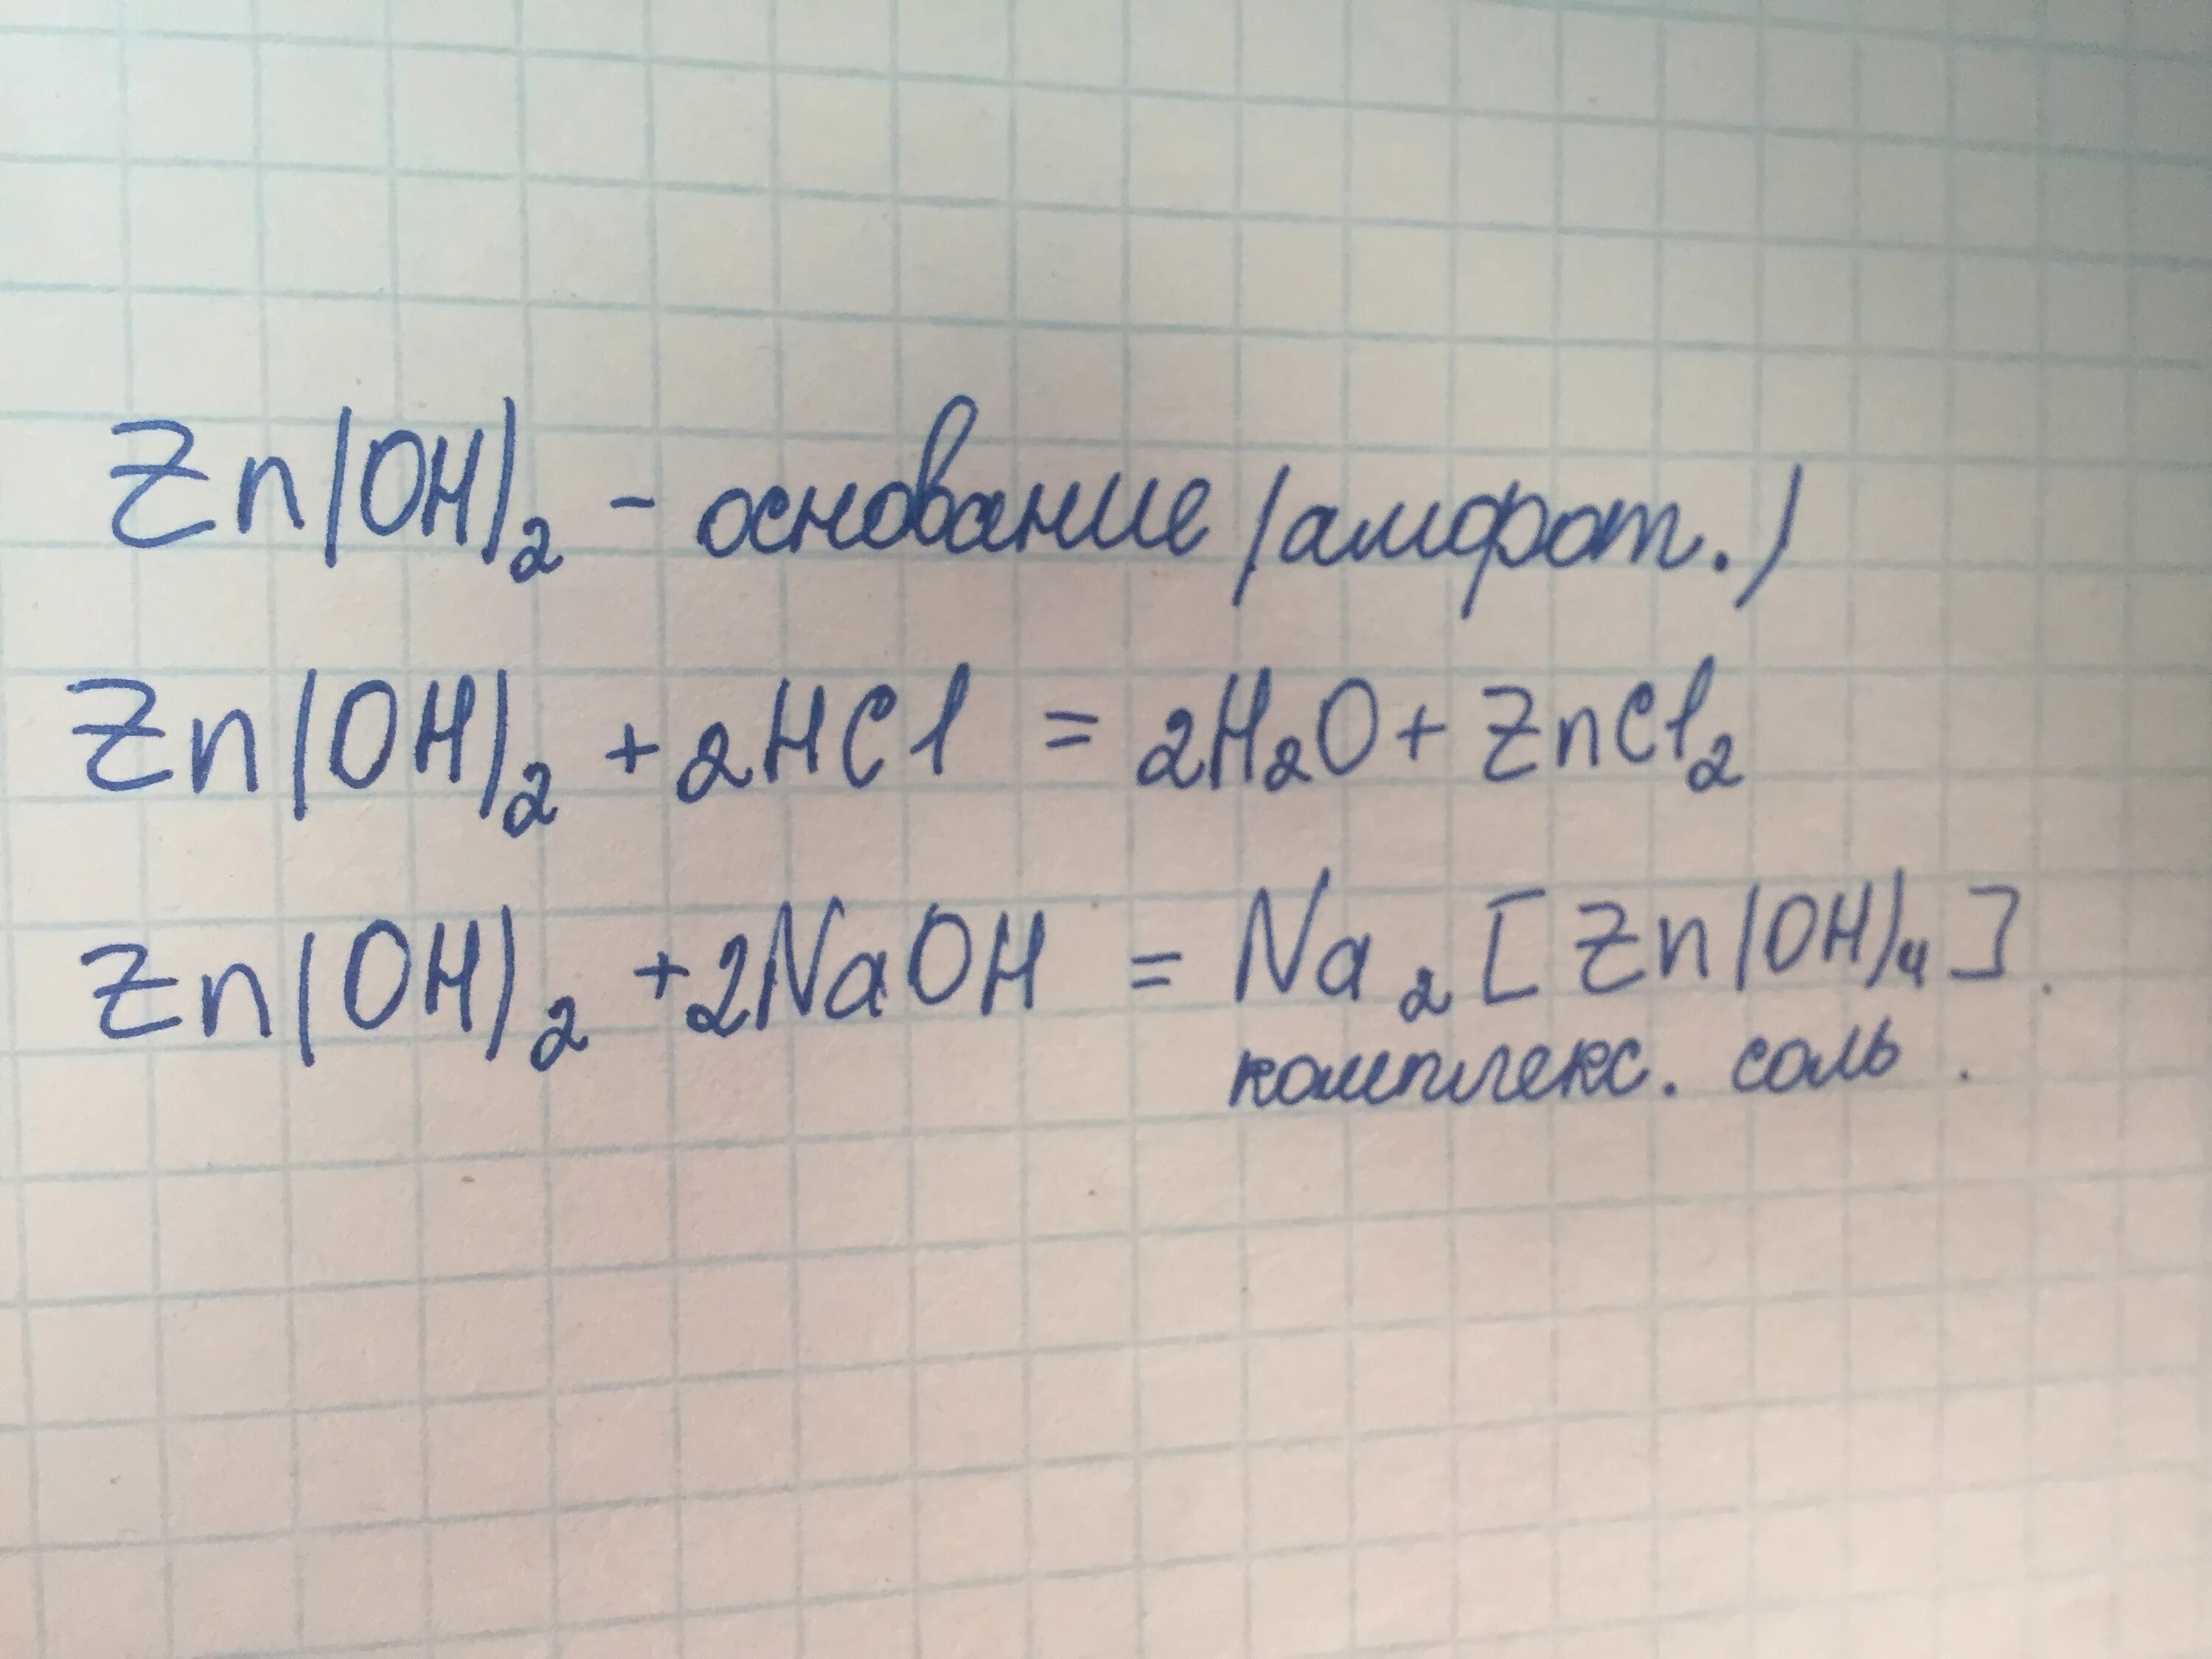 Zn(OH)₂ - основание (амфот.)
Zn(OH)₂ + 2HCl = 2H₂O + ZnCl₂
Zn(OH)₂ + 2NaOH = Na₂[Zn(OH)₄].
комплекс. соль.